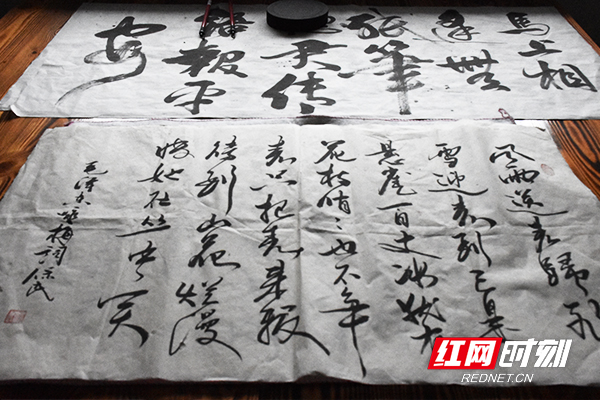 馬上相
逢無
紙筆
君传
語報平
安
風雨送春歸飛
雪迎春到已是
悬崖百丈冰犹有
花枝俏〻也不争
春只把春来报
待到山花烂漫
時她在丛中笑
毛泽东咏梅词
红网时刻
REDNET.CN